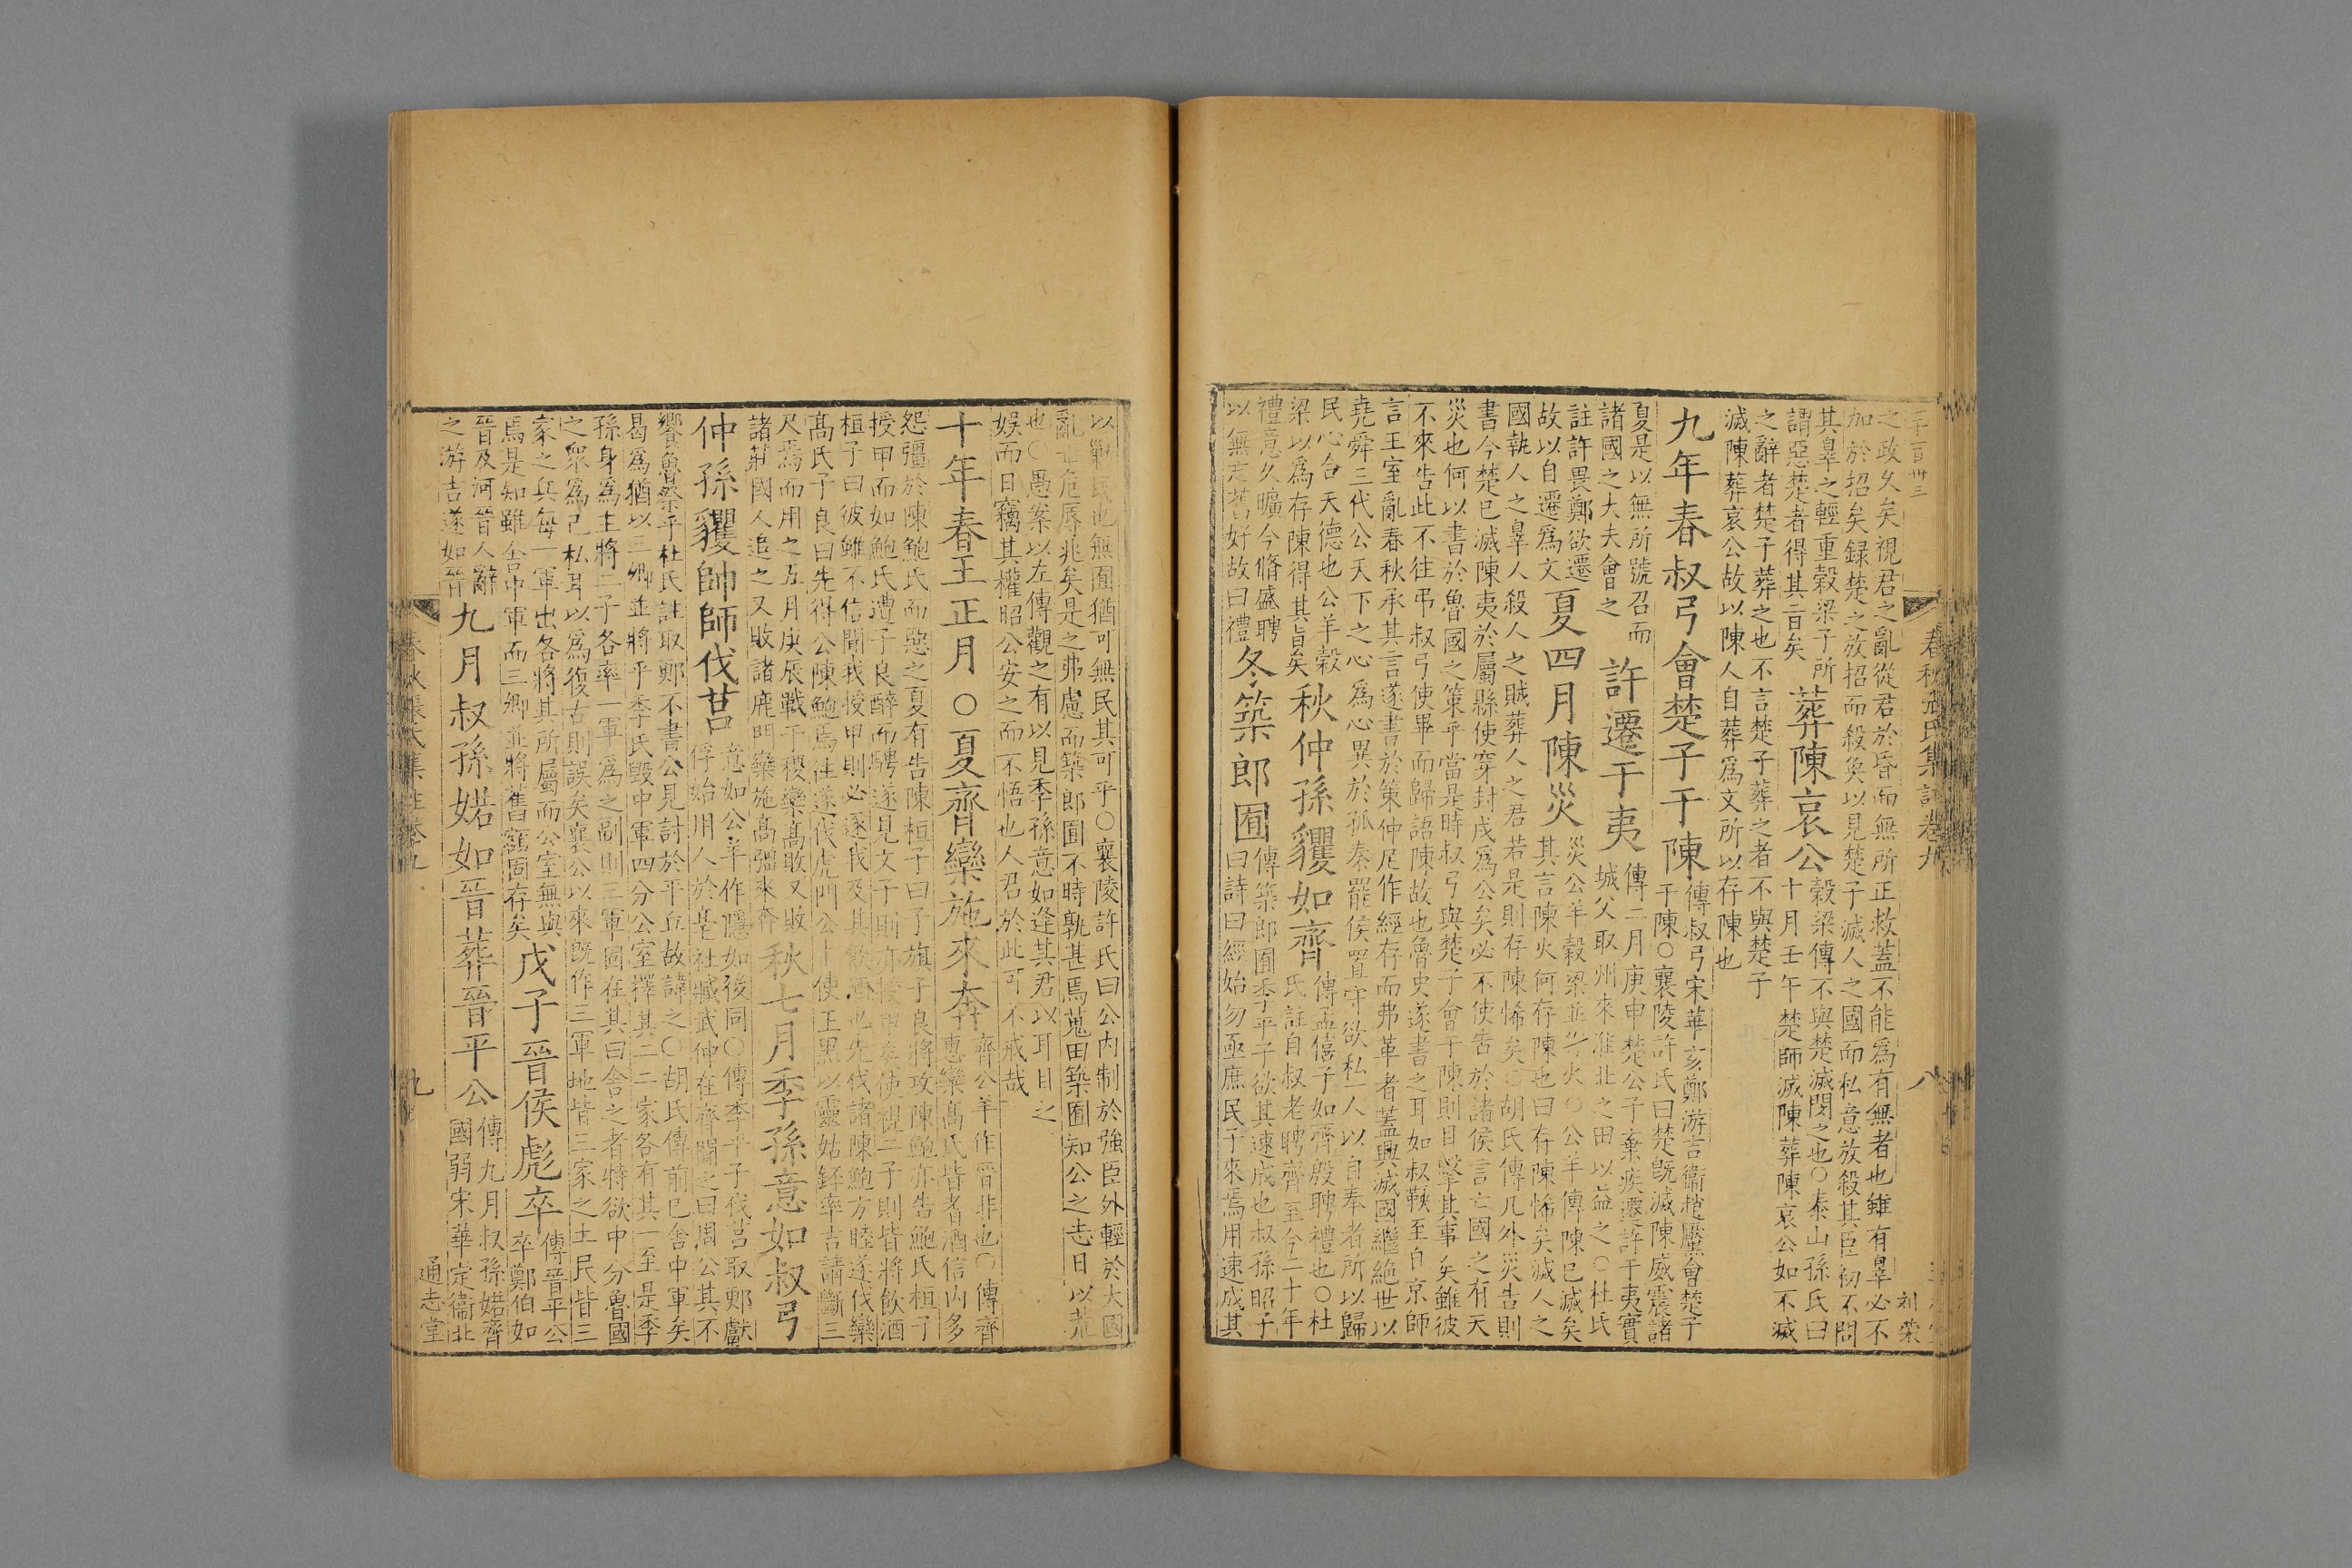 二千一百卅三
春秋張氏集註卷九
八
刘荣
之政久矣視君之亂從君於昏而無所正救蓋不能為有無者也雖有辠必不
加於招矣録楚之放招而殺奐以見楚子滅人之國而私意放殺其臣初不問
其辠之輕重穀梁子所
謂惡楚者得其旨矣
葬陳哀公
穀梁傳不與楚滅閔之也○泰山孫氏曰
十月壬午楚師滅陳葬陳哀公如不滅
之辭者楚子葬之也不言楚子葬之者不與楚子
滅陳葬哀公故以陳人自葬為文所以存陳也
九年春叔弓會楚子于陳
傳叔弓宋華亥鄭游吉衞趙黶會楚子
于陳○襄陵許氏曰楚既滅陳威震諸
夏是以無所號召而
諸國之大夫會之
許遷于夷
傳二月庚申楚公子棄疾遷許于夷實
城父取州來淮北之田以益之○杜氏
註許畏鄭欲遷
故以自遷為文
夏四月陳災
災公羊穀梁並作火○公羊傳陳已滅矣
其言陳火何存陳也曰存陳悕矣滅人之
國執人之辠人殺人之賊葬人之君若是則存陳悕矣○胡氏傳凡外災告則
書今楚已滅陳夷於屬縣使穿封戌為公矣必不使告於諸侯言亡國之有天
災也何以書於魯國之策乎當是時叔弓與楚子會于陳則目擊其事矣雖彼
不來告此不往弔叔弓使畢而歸語陳故也魯史遂書之耳如叔鞅至自京師
言王室亂春秋承其言遂書於策仲尼作經存而弗革者蓋興滅國繼絶世以
堯舜三代公天下之心為心異於孤秦罷侯置守欲私一人以自奉者所以歸
民心合天德也公羊穀
梁以為存陳得其旨矣
秋仲孫貜如齊
傳孟僖子如齊殷聘禮也○杜
氏註自叔老聘齊至今二十年
禮意久曠今脩盛聘
以無忘舊好故曰禮
冬築郎囿
傳築郎囿季平子欲其速成也叔孫昭子
曰詩曰經始勿亟庶民子來焉用速成其
以勦民也無囿猶可無民其可乎○襄陵許氏曰公内制於強臣外輕於大國
亂世危辱兆矣是之弗慮而築郎囿不時孰甚焉蒐田築囿知公之志日以荒
也○愚案以左傳觀之有以見季孫意如逢其君以耳目之
娯而日竊其權昭公安之而不悟也人君於此可不戒哉
十年春王正月○夏齊欒施來奔
齊公羊作晉非也○傳齊
惠欒高氏皆耆酒信内多
怨彊於陳鮑氏而惡之夏有告陳桓子曰子旗子良將攻陳鮑亦告鮑氏桓子
授甲而如鮑氏遭子良醉而騁遂見文子則亦授甲矣使視二子則皆將飲酒
桓子曰彼雖不信聞我授甲則必逐我及其飲酒也先伐諸陳鮑方睦遂伐欒
高氏子良曰先得公陳鮑焉往遂伐虎門公卜使王黒以靈姑銔率吉請斷三
尺焉而用之五月庚辰戰于稷欒高敗又敗
諸莊國人追之又敗諸鹿門欒施高彊來奔
秋七月季孫意如叔弓
仲孫貜帥師伐莒
意如公羊作隱如後同○傳季平子伐莒取鄭獻
俘始用人於亳社臧武仲在齊聞之曰周公其不
饗魯祭乎杜氏註取鄭不書公見討於平丘故諱之○胡氏傳前已舍中軍矣
曷為猶以三卿並將乎季氏毀中軍四分公室擇其二二家各有其一至是季
孫身為主將二子各率一軍為之副則三軍固在其曰舍之者特欲中分魯國
之衆為己私耳以為復古則誤矣襄公以來既作三軍地皆三家之土民皆三
家之兵每一軍出各將其所屬而公室無與
焉是知雖舍中軍而三卿並將舊額固存矣
戊子晉侯彪卒
傳晉平公
卒鄭伯如
晉及河晉人辭
之游吉遂如晉
九月叔孫婼如晉葬晉平公
傳九月叔孫婼齊
國弱宋華定衞北
春秋張氏集註卷九
九
通志堂